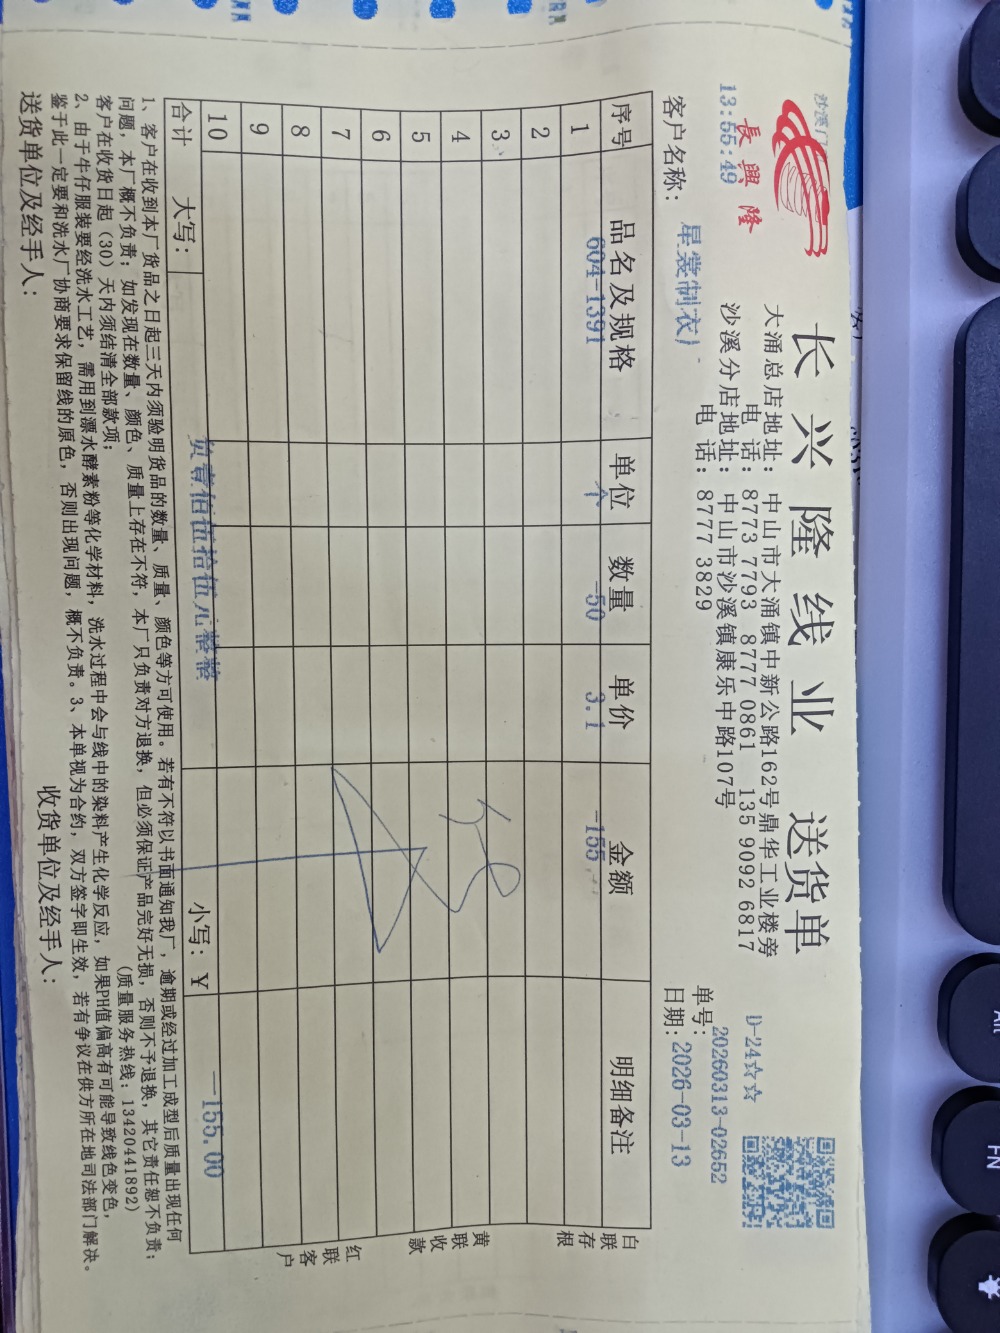 沙溪门
13:55:49
長興隆
长兴隆线业 送货单
大涌总店地址：中山市大涌镇中新公路162号鼎华工业楼旁
电 话：8773 7793 8777 0861 135 9092 6817
沙溪分店地址：中山市沙溪镇康乐中路107号
电 话：8777 3829
D-24☆☆
单号：20260313-02652
客户名称：星裳制衣厂
日期：2026-03-13
序号 品名及规格 单位 数量 单价 金额 明细备注
1 604-1391 个 -50 3.1 -155
2
3
4
5
6
7
8
9
10
合计 大写：负壹佰伍拾伍元整整 小写：￥ -155.00
白联存根
黄联收款
红联客户
1、客户在收到本厂货品之日起三天内须验明货品的数量、质量、颜色等方可使用。若有不符以书面通知我厂，逾期或经过加工成型后质量出现任何
问题，本厂概不负责；如发现在数量、颜色、质量上存在不符，本厂只负责对方退换，但必须保证产品完好无损，否则不予退换，其它责任恕不负责；
客户在收货日起（30）天内须结清全部款项； （质量服务热线：13420441892）
2、由于牛仔服装要经洗水工艺，需用到漂水酵素粉等化学材料，洗水过程中会与线中的染料产生化学反应，如果PH值偏高有可能导致线色变色，
鉴于此一定要和洗水厂协商要求保留线的原色，否则出现问题，概不负责。3、本单视为合约，双方签字即生效，若有争议在供方所在地司法部门解决。
送货单位及经手人： 收货单位及经手人：
Alt
FN